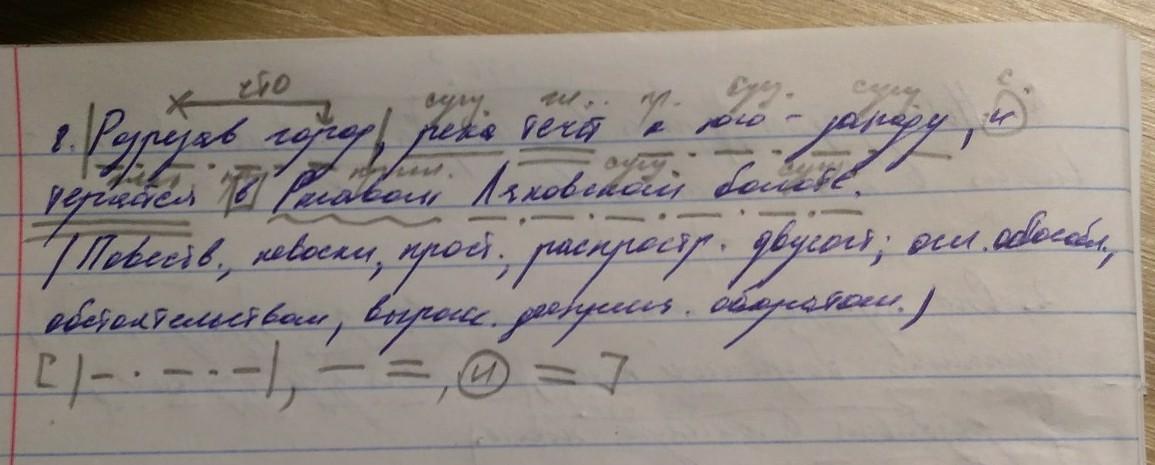 что
сущ. гл. пр. сущ. сущ. с.
8. |Разрезав город|, река течёт к юго-западу, и
теряется [в] Ржавом Ляховском болоте.
(Повеств., невоскл., прост., распростр. двусост; осл. обособл.,
обстоятельством, выраж. дееприч. оборотом.)
[|-·-·-|, — =, и =]